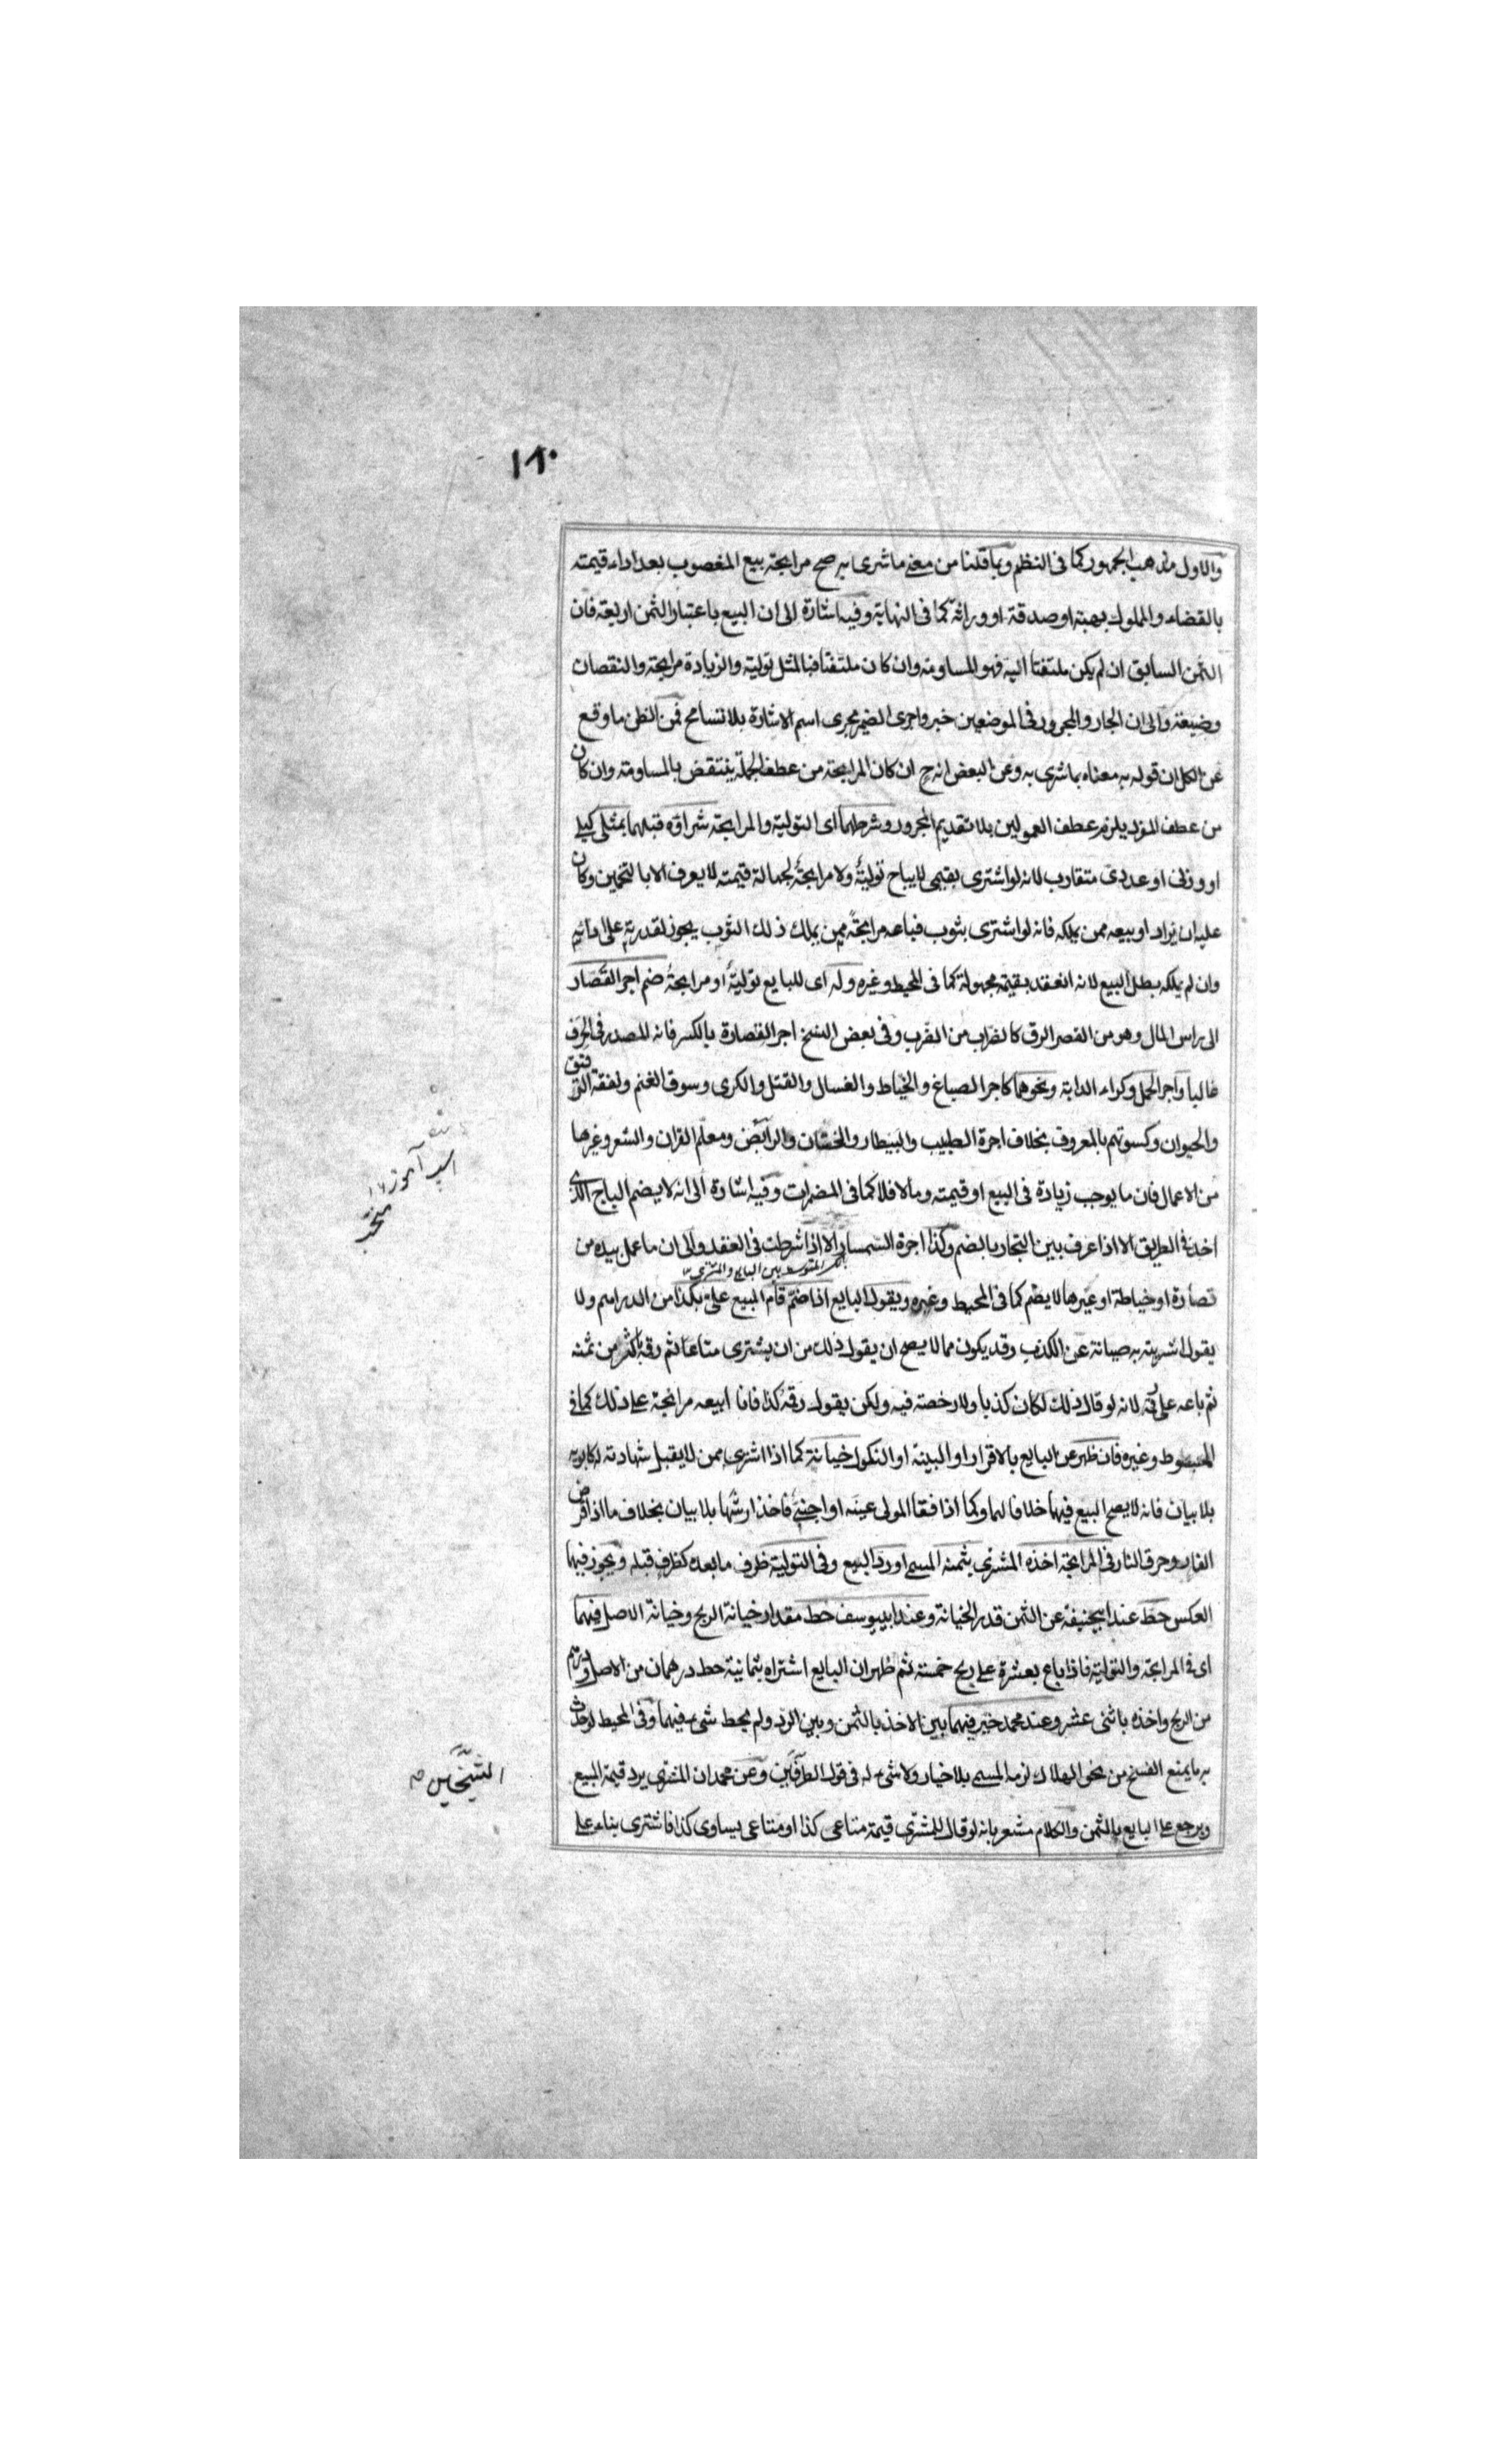 ١٨٠
والاول مذهب الجمهور كما في النظم وبما قلنا من معنى ما شرى به صح مرابحة بيع المغصوب بعد اداء قيمته
بالقضاء والمملوك بهبة او صدقة او وراثة كما في النهاية وفيه اشارة الى ان البيع باعتبار الثمن اربعة فان
الثمن السابق ان لم يكن ملتفتا اليه فهو المساومة وان كان ملتفتا فبالمثل تولية والزيادة مرابحة والنقصان
وضيعة والى ان الجار والمجرور في الموضعين خبر واجرى الضمير مجرى اسم الاشارة بلا تسامح فمن الظن ما وقع
عن الكل ان قوله به معناه بما شرى به وعن البعض انه ح ان كان المرابحة من عطف الجملة ينتقض بالمساومة وان كان
من عطف المفرد يلزم عطف المعمولين بلا تقديم المجرور وشرطهما اى التولية والمرابحة شراؤه قبلهما بمثلى كيلى
او وزنى او عددى متقارب لانه لو اشترى بقيمى لا يباح تولية ولا مرابحة لجهالة قيمته لا يعرف الا بالتخمين وكان
عليه ان يزاد او بيعه ممن يملكه فانه لو اشترى بثوب فباعه مرابحة ممن يملك ذلك الثوب يجوز لقدرته على ادائه
وان لم يملكه بطل البيع لانه انعقد بقيمة مجهولة كما في المحيط وغيره وله اى للبايع تولية او مرابحة ضم اجر القصار
الى راس المال وهو من القصر الدق كالضراب من الضرب وفي بعض النسخ اجر القصارة بالكسر فانه المصدر في الحرف
غالبا واجر الحمل وكراء الدابة ونحوهما كاجر الصباغ والخياط والغسال والفتل والكرى وسوق الغنم ونفقة الرقيق
والحيوان وكسوتهم بالمعروف بخلاف اجرة الطبيب والبيطار والختان والرايض ومعلم القران والشعر وغيرها
من الاعمال فان ما يوجب زيادة في المبيع او قيمته وما لا فلا كما في المضمرات وفيه اشارة الى انه لا يضم الباج الذى
اخذ في الطريق الا اذا عرف بين التجار بالضم وكذا اجرة السمسار الا اذا شرطت في العقد والى ان ما عمل بيده من
المتوسط بين البايع والمشترى
قصارة او خياطة او غيرها لا يضم كما في المحيط وغيره ويقول البايع اذا ضم قام المبيع على بكذا من الدراهم ولا
يقول اشتريته به صيانة عن الكذب وقد يكون مما لا يصح ان يقول ذلك من ان يشترى متاعا ثم رقه باكثر من ثمنه
ثم باعه على رقمه لانه لو قال ذلك لكان كذبا ولا رخصة فيه ولكن يقول رقمه كذا فانا ابيعه مرابحة على ذلك كما في
المبسوط وغيره فان ظهر عن البايع بالاقرار او البينة او النكول خيانة كما اذا اشترى ممن لا يقبل شهادته له
بلا بيان فانه لا يصح البيع فيهما خلافا لهما وكما اذا فقأ المولى عينه او اجنبى فاخذ ارشها بلا بيان بخلاف ما اذا قرض
الفار وحرق النار في المرابحة اخذه المشترى بثمنه المسمى او رد المبيع وفي التولية ظرف ما بعده كظرف قبله ويجوز فيهما
العكس حط عند ابيحنيفة عن الثمن قدر الخيانة وعند ابييوسف حط مقدار خيانة الربح وخيانة الاصل فيهما
اى في المرابحة والتولية فاذا باع بعشرة على ربح خمسة ثم ظهر ان البايع اشتراه بثمانية حط درهمان من الاصل ودرهم
من الربح واخذه باثنى عشر وعند محمد خير فيهما بين الاخذ بالثمن وبين الرد ولم يحط شىء فيهما وفي المحيط لو حدث
به ما يمنع الفسخ من نحو الهلاك لزمه المسمى بلا خيار ولا شىء له في قول الطرفين وعن محمد ان المشترى يرد قيمة المبيع
ويرجع على البايع بالثمن والكلام مشعر بانه لو قال للمشترى قيمة متاعى كذا او متاعى يساوى كذا فاشترى بناء على
اسب آموز
الشيخين